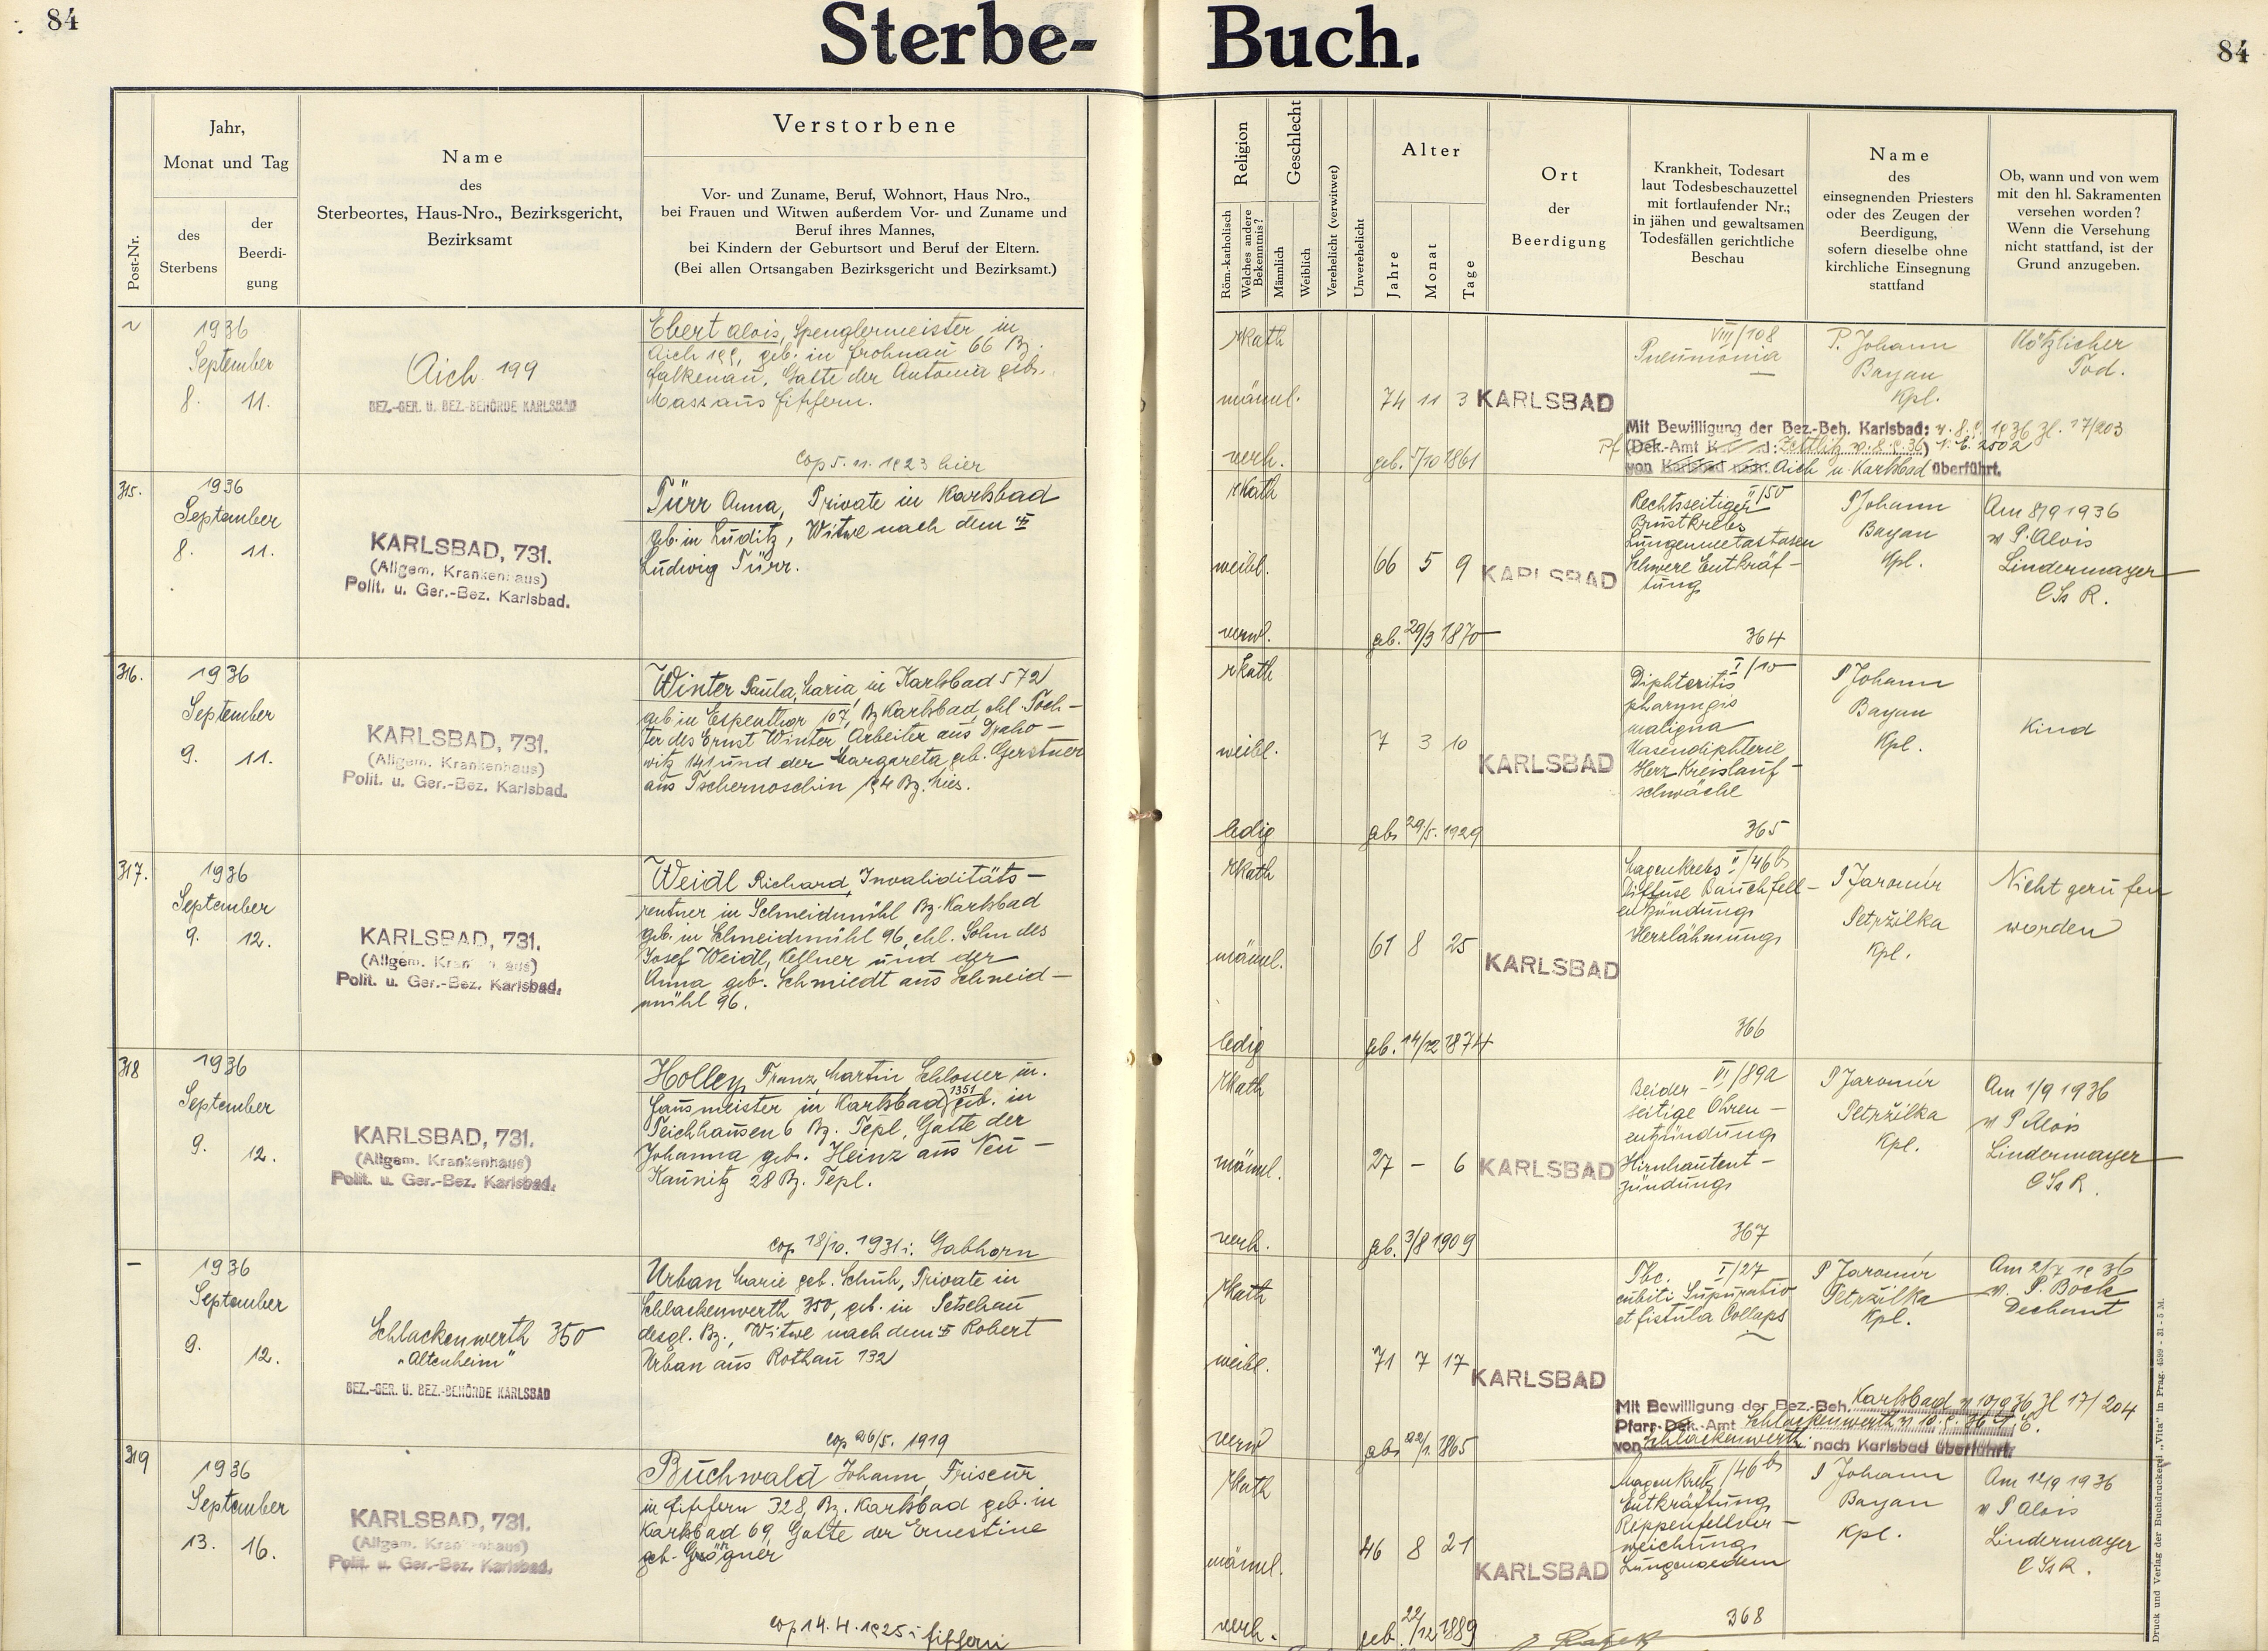 84
Sterbe-
Buch.
84
Post-Nr.
Jahr,
Monat und Tag
des
Sterbens
der
Beerdi-
gung
Name
des
Sterbeortes, Haus-Nro., Bezirksgericht,
Bezirksamt
Verstorbene
Vor- und Zuname, Beruf, Wohnort, Haus Nro.,
bei Frauen und Witwen außerdem Vor- und Zuname und
Beruf ihres Mannes,
bei Kindern der Geburtsort und Beruf der Eltern.
(Bei allen Ortsangaben Bezirksgericht und Bezirksamt.)
Religion
Röm.-katholisch
Welches andere
Bekenntnis?
Geschlecht
Männlich
Weiblich
Verehelicht (verwitwet)
Unverehelicht
Alter
Jahre
Monat
Tage
Ort
der
Beerdigung
Krankheit, Todesart
laut Todesbeschauzettel
mit fortlaufender Nr.;
in jähen und gewaltsamen
Todesfällen gerichtliche
Beschau
Name
des
einsegnenden Priesters
oder des Zeugen der
Beerdigung,
sofern dieselbe ohne
kirchliche Einsegnung
stattfand
Ob, wann und von wem
mit den hl. Sakramenten
versehen worden?
Wenn die Versehung
nicht stattfand, ist der
Grund anzugeben.
1936
September
8. 11.
Aich 199
BEZ.-GER. U. BEZ.-BEHÖRDE KARLSBAD
Ebert Alois, Spenglermeister in
Aich 199, geb. in Frohnau 66 Bz.
Falkenau, Gatte der Antonia geb.
Mass aus Fischern.
cop 5. 11. 1923 hier
rkath
männl.
verh.
74 11 3
geb. 5/10 1861
KARLSBAD
VIII/108
Pneumonia
P. Johann
Bayan
Kpl.
Plötzlicher
Tod.
Mit Bewilligung der Bez.-Beh. Karlsbad: v. 8.9.1936 Zl. 17/203
(Dek.-Amt Zettlitz v. 8.9.36)
von Aich n. Karlsbad überführt.
315.
1936
September
8. 11.
KARLSBAD, 731.
(Allgem. Krankenhaus)
Polit. u. Ger.-Bez. Karlsbad.
Türr Anna, Private in Karlsbad
geb. in Luditz, Witwe nach dem †
Ludwig Türr.
rkath
weibl.
verw.
66 5 9
geb. 29/3 1870
KARLSBAD
II/50
Rechtsseitiger
Brustkrebs
Lungenmetastasen
Schwere Entkräf-
tung
364
P Johann
Bayan
Kpl.
Am 8/9 1936
v P. Alois
Lindermayer
CSsR.
316.
1936
September
9. 11.
KARLSBAD, 731.
(Allgem. Krankenhaus)
Polit. u. Ger.-Bez. Karlsbad.
Winter Paula, Maria in Karlsbad 572
geb in Espenthor 107, Bz Karlsbad, ehl. Toch-
ter des Ernst Winter Arbeiter aus Draho-
witz 141 und der Margareta geb. Gerstner
aus Tschernoschin 194 Bz. Mies.
rkath
weibl.
ledig
7 3 10
geb 29/5. 1929
KARLSBAD
I/10
Diphteritis
pharyngis
maligna
Nasendiphterie
Herz Kreislauf-
schwäche
365
P Johann
Bayan
Kpl.
Kind
317.
1936
September
9. 12.
KARLSBAD, 731.
(Allgem. Krankenhaus)
Polit. u. Ger.-Bez. Karlsbad.
Weidl Richard, Invaliditäts-
rentner in Schneidmühl Bz. Karlsbad
geb. in Schneidmühl 96, ehl. Sohn des
Josef Weidl, Kellner und der
Anna geb. Schmiedt aus Schneid-
mühl 96.
rkath
männl.
ledig
61 8 25
geb. 14/12 1874
KARLSBAD
Magenkrebs II/46b
Diffuse Bauchfell-
entzündung
Herzlähmung
366
P Jaromír
Petržilka
Kpl.
Nicht gerufen
worden
318
1936
September
9. 12.
KARLSBAD, 731.
(Allgem. Krankenhaus)
Polit. u. Ger.-Bez. Karlsbad.
Holley Franz, Martin Schlosser u.
Hausmeister in Karlsbad 1351 geb. in
Teichhausen 6 Bz. Tepl, Gatte der
Johanna geb. Heinz aus Neu-
Kaunitz 28 Bz. Tepl.
cop 18/10. 1931 i. Gabhorn
rkath
männl.
verh.
27 - 6
geb. 3/8 1909
KARLSBAD
VI/89a
Beider-
seitige Ohren-
entzündung
Hirnhautent-
zündung
367
P Jaromír
Petržilka
Kpl.
Am 1/9 1936
v P Alois
Lindermayer
CSsR.
-
1936
September
9. 12.
Schlackenwerth 350
"Altenheim"
BEZ.-GER. U. BEZ.-BEHÖRDE KARLSBAD
Urban Marie geb. Schuh, Private in
Schlackenwerth 350, geb. in Petschau
desgl. Bz., Witwe nach dem † Robert
Urban aus Rothau 132
cop 26/5. 1919
rkath
weibl.
verw
71 7 17
geb 22/1. 1865
KARLSBAD
Tbc. I/27
cubiti Supuratio
et fistula Collaps
P Jaromír
Petržilka
Kpl.
Am 2/7 1936
v. P. Bock
Dechant
Mit Bewilligung der Bez.-Beh. Karlsbad v 10/9 36 Zl 17/204
Pfarr-Dek.-Amt Schlackenwerth v 10.9.36
von Schlackenwerth nach Karlsbad überführt.
319
1936
September
13. 16.
KARLSBAD, 731.
(Allgem. Krankenhaus)
Polit. u. Ger.-Bez. Karlsbad.
Buchwald Johann, Friseur
in Fischern 328, Bz. Karlsbad geb. in
Karlsbad 69, Gatte der Ernestine
geb.
cop 14. 4. 1925 i Fischern
rkath
männl.
verh.
46 8 21
geb. 22/12 1889
KARLSBAD
Magenkrebs II/46b
Entkräftung
Rippenfellver-
weichung
Lungenoedem
368
P Johann
Bayan
Kpl.
Am 12/9 1936
v P Alois
Lindermayer
CSsR.
Druck und Verlag der Buchdruckerei „Vita“ in Prag. 4599 - 31 - 5 M.